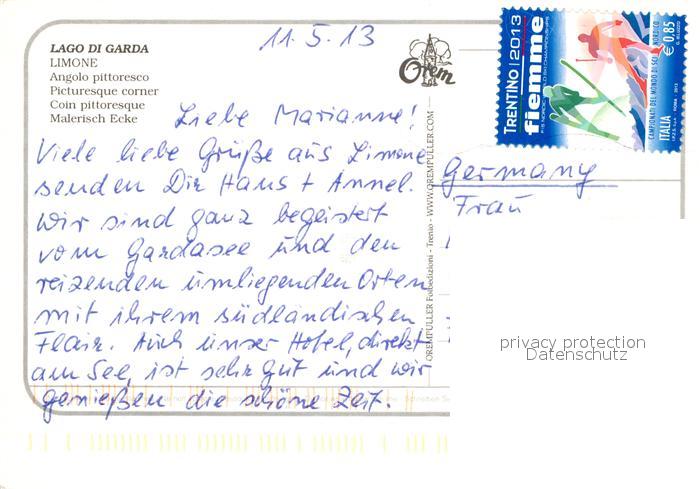 11.5.13
LAGO DI GARDA
LIMONE
Angolo pittoresco
Picturesque corner
Coin pittoresque
Malerisch Ecke
Orem
TRENTINO | 2013
fiemme
FIS NORDIC WORLD SKI CHAMPIONSHIPS
CAMPIONATI DEL MONDO DI SCI NORDICO
ITALIA
€ 0,85
Liebe Marianne!
Viele liebe Grüße aus Limone
senden Dir Hans + Annel.
Wir sind ganz begeistert
vom Gardasee und den
reizenden umliegenden Orten
mit ihrem südländischen
Flair. Auch unser Hotel, direkt
am See, ist sehr gut und wir
genießen die schöne Zeit.
OREMPULLER Fotoedizioni - Trento - WWW.OREMPULLER.COM
Germany
Frau
privacy protection
Datenschutz